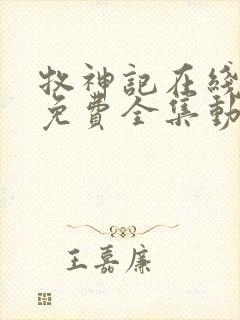 牧神記在綫
免費全集動
王嘉廉